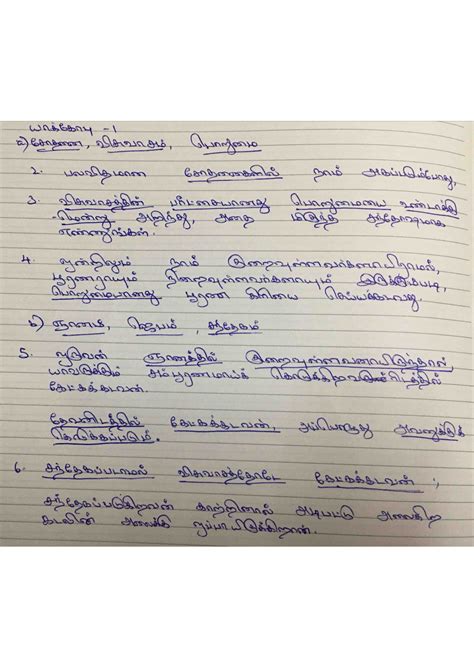 யாக்கோபு - 1
a) சோதனை, விசுவாசம், பொறுமை
2. பலவிதமான சோதனைகளில் நாம் அகப்படும்போது,
3. விசுவாசத்தின் பரீட்சையானது பொறுமையை உண்டாக்கு
-மென்று அறிந்து, அதை மிகுந்த சந்தோஷமாக
எண்ணுங்கள்.
4. ஒன்றிலும் நாம் குறைவுள்ளவர்களாயிராமல்,
பூரணராயும் நிறைவுள்ளவர்களாயும் இருக்கும்படி,
பொறுமையானது பூரண கிரியை செய்யக்கடவது.
b) ஞானம், ஜெபம், சந்தேகம்
5. ஒருவன் ஞானத்தில் குறைவுள்ளவனாயிருந்தால்,
யாவருக்கும் சம்பூரணமாய்க் கொடுக்கிறவரிடத்தில்
கேட்கக்கடவன்.
தேவனிடத்தில் கேட்கக்கடவன், அப்பொழுது அவனுக்குக்
கொடுக்கப்படும்.
6. சந்தேகப்படாமல் விசுவாசத்தோடே கேட்கக்கடவன் ;
சந்தேகப்படுகிறவன் காற்றினால் அடிபட்டு அலைகிற
கடலின் அலைக்கு ஒப்பாயிருக்கிறான்.